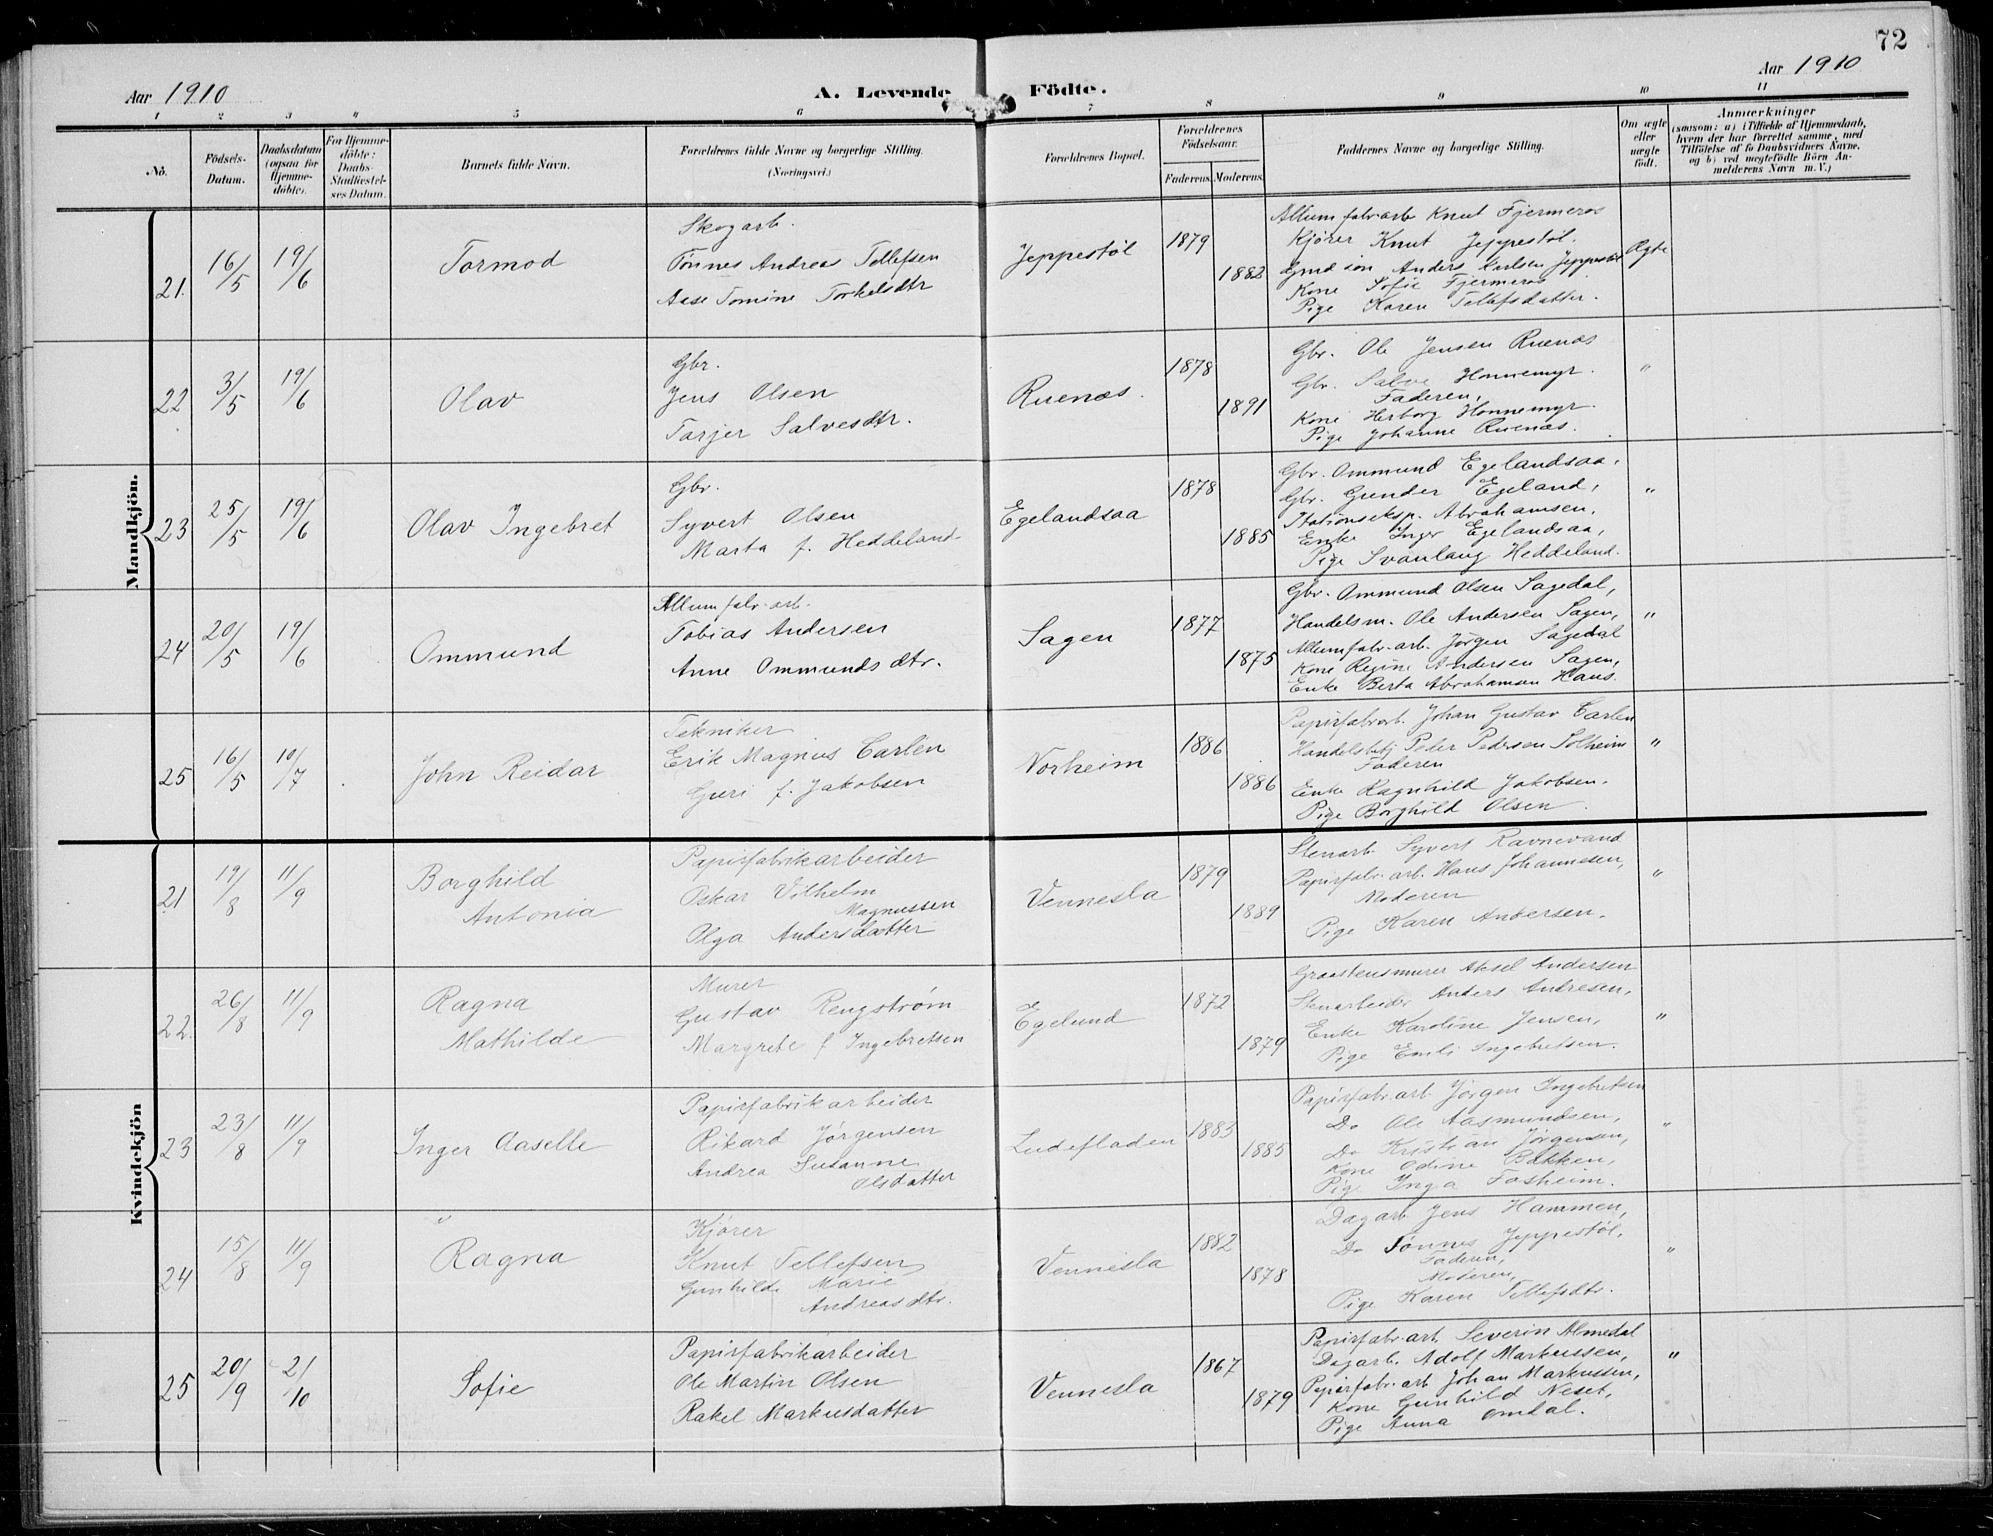 72
Aar 1910
A. Levende Födte.
Aar 1910
1 2 3 4 5 6 7 8 9 10 11
No.
Födsels-Datum.
Daabsdatum (ogsaa for Hjemme-döbte).
For Hjemme-döbte: Daabs-Stadfæstel-ses Datum.
Barnets fulde Navn.
Forældrenes fulde Navne og borgerlige Stilling.
(Næringsvei.)
Forældrenes Bopæl.
Forældrenes Födselsaar.
Faderens. Moderens.
Faddernes Navne og borgerlige Stilling.
Om ægte eller uægte födt.
Anmærkninger
(saasom: a) i Tilfælde af Hjemmedaab, hvem der har forrettet samme, med Tilföielse af to Daabsvidners Navne, og b) ved uægtefödte Börn An-melderens Navn m. V.)
Mandkjön.
21. 16/5 19/6 Tormod
Skogarb.
Tønnes Andreas Tellefsen
Aase Tomine Torkelsdtr
Jeppestøl 1879 1882
Allumfabr.arb Knut Fjermeros
Kjører Knut Jeppestøl.
Gmd søn Anders Karlsen Jeppestøl
Kone Sofie Fjermeros
Pige Karen Tellefsdatter.
Ægte
22 3/5 19/6 Olav
Gbr.
Jens Olsen
Tarjer Salvesdtr.
Ruenæs. 1878 1891
Gbr. Ole Jensen Ruenæs
Gbr. Salve Honnemyr.
Faderen,
Kone Herborg Honnemyr.
Pige Johanne Ruenæs.
"
23 25/5 19/6 Olav Ingebret
Gbr.
Syvert Olsen
Marta f. Heddeland
Egelandsaa 1878 1885
Gbr. Ommund Egelandsaa,
Gbr. Gunder Egeland,
Stationseksp. Abrahamsen,
Enke Inger Egelandsaa,
Pige Svanlaug Heddeland.
"
24 20/5 19/6 Ommund
Allumfabr.arb.
Tobias Andersen
Anne Ommundsdtr.
Sagen 1877 1875
Gbr. Ommund Olsen Sagedal,
Handelsm. Ole Andersen Sagen,
Allumfabr.arb. Jørgen Sagedal
Kone Regine Andersen Sagen,
Enke Berta Abrahamsen Haus.
"
25 16/5 10/7 John Reidar
Tekniker
Erik Magnus Carlen
Guri f. Jakobsen
Norheim 1886 1886
Papirfabrarb. Johan Gustav Carlen
Handelsbetj Peder Pedersen Solheim
Faderen
Enke Ragnhild Jakobsen.
Pige Borghild Olsen.
"
Kvindekjön
21 19/8 11/9 Borghild
Antonia
Papirfabrikarbeider
Oskar Vilhelm
Magnussen
Olga Andersdatter
Vennesla 1879 1889
Stenarb. Syvert Ravnevand
Papirfabr.arb. Hans Johannesen,
Moderen
Pige Karen Andersen.
"
22 26/8 11/9 Ragna
Mathilde
Murer
Gustav Rengstrøm
Margrete f Ingebretsen
Egelund 1872 1879
Graastensmurer Aksel Andersen
Stenarbeider Anders Andresen,
Enke Karoline Jensen,
Pige Emli Ingebretsen.
"
23 23/8 11/9 Inger Aaselle
Papirfabrikarbeider
Rikard Jørgensen
Andrea Susanne
Olsdatter
Ludefladen 1883 1885
Papirfabr.arb. Jørgen Ingebretsen
Do Ole Aasmundsen,
Do Kristian Jørgensen,
Kone Odine Bakken,
Pige Inga Fosheim.
"
24 15/8 11/9 Ragna
Kjører
Knut Tellefsen
Gunhilde Marie
Andreasdtr.
Vennesla 1882 1878
Dagarb Jens Hammen,
Do Tønnes Jeppestøl,
Faderen,
Moderen,
Pige Karen Tellefsdtr.
"
25 20/9 2/10 Sofie
Papirfabrikarbeider
Ole Martin Olsen
Rakel Markusdatter
Vennesla 1867 1879
Papirfabr.arb. Severin Almedal
Dagarb. Adolf Markussen,
Papirfabr.arb Johan Markussen,
Kone Gunhild Neset,
Pige Anna Omdal.
"